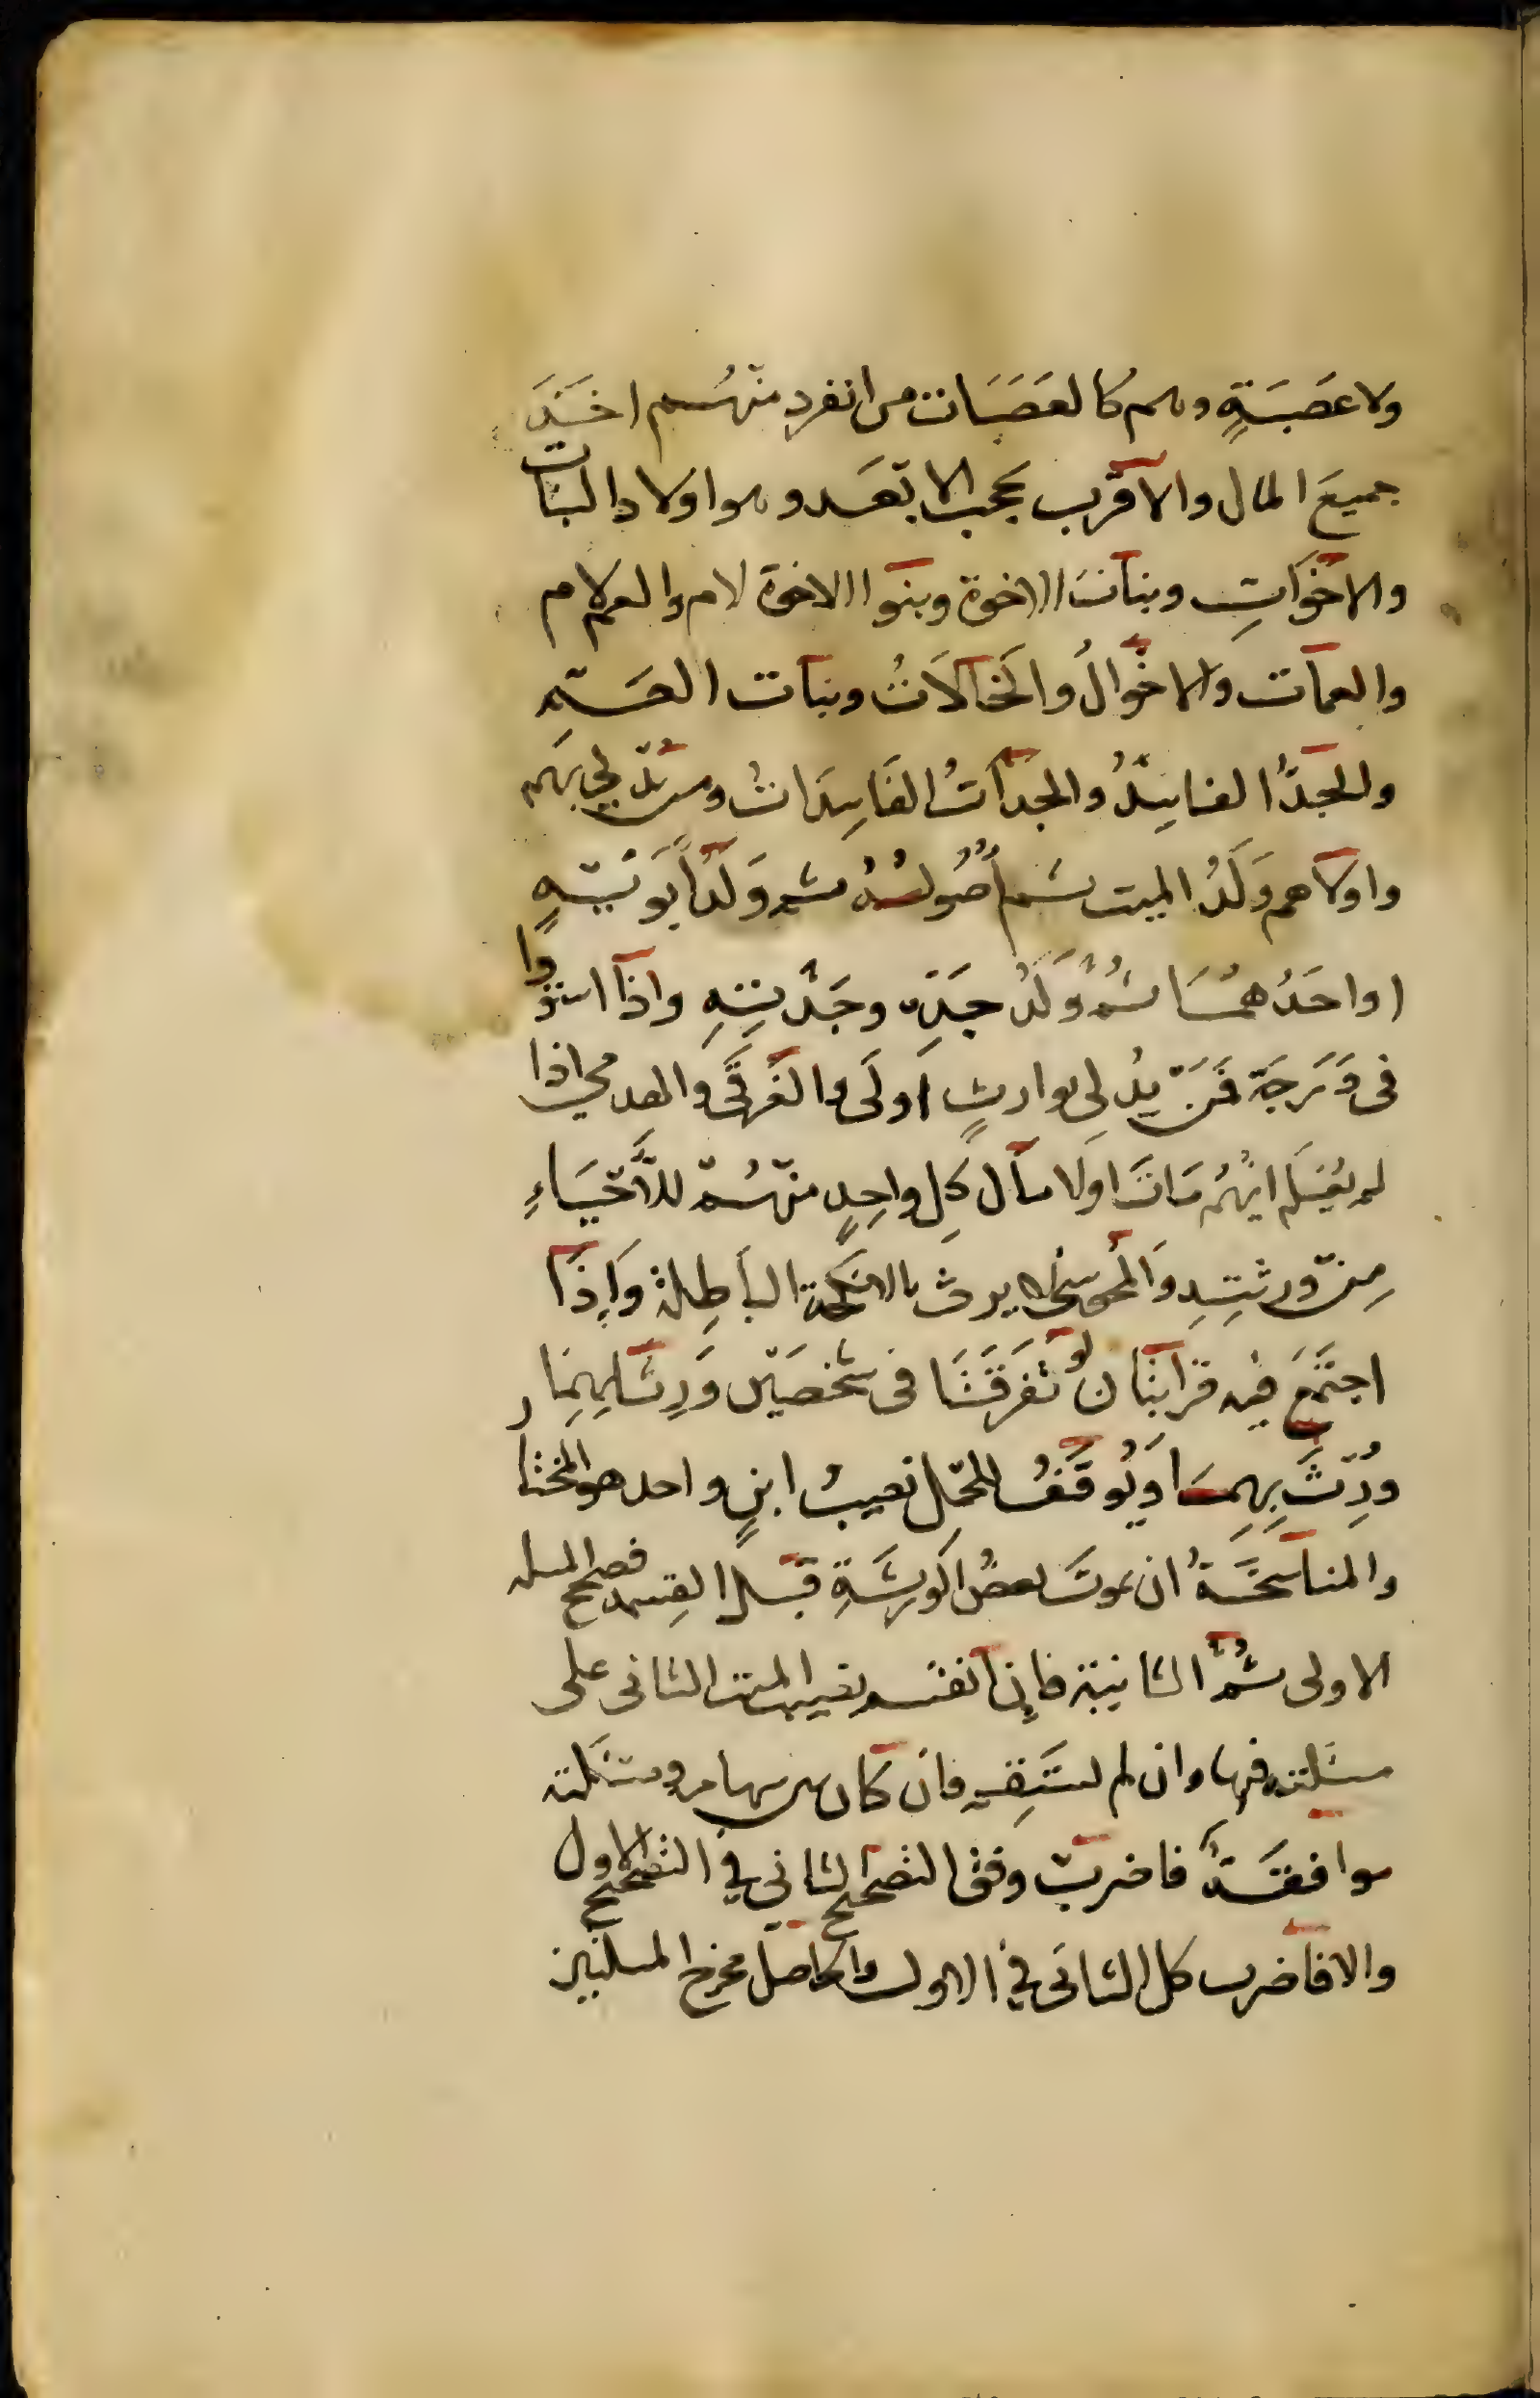 ولا عَصَبَةٍ وهم كالعَصَبَات من انفرد منهُم اخَذَ
جميعَ المال والاقرب يحجب الابعَد وهو اولاد البنات
والاخوَاتِ وبنات الاخوة وبنوا الاخوة لام والعم لام
والعمات والاخوالُ وَالخالاَتُ وبنات العَمّ
والجدُّ الفاسِدُ والجداتُ الفَاسِدَاتُ ومن يُدلي بهم
واولاهم وَلَدُ الميت ثم أُصُولُهُ ثم وَلَدُ أَبوَيْهِ
او احَدُهُمَا ثُمَّ وَلَدُ جَدِّه وجَدَّتِهِ واذا استووا
فى دَرَجَة فَمَنْ يُدلِى بوارثٍ اَولَى والغَرقَى والهدمى اذا
لم يُعْلَم ايُّهُم مَاتَ اولا مال كلِ واحِدٍ منهُمْ للأَحْيَاءِ
مِنْ ورثَتِهِ وَالمجُوسِىُّ لا يرث بالانكحة الباطِلة وَاِذَا
اجتَمَعَ فيه قرابتان لو تَفَرقَتَا فى شخصَيْن وَرِثَا بهِمَا
وُرِّثَ بِهِمَا وَيُوقَفُ للحمل نصيبُ ابنٍ واحد هو المختار
والمناسَخَةُ ان يموتَ بعضُ الوَرَثَةِ قبل القِسمة فصحح المسئلة
الاولى ثُمَّ الثانية فاِن انقسم نصيب الميت الثانى على
مسئلته فبها وان لم يستَقِم فان كان بين سهامه ومسئلته
موافقَةٌ فاضرب وفق التصحيح الثاني في التصحيح الاول
والا فاضرب كل الثانى في الاول والحاصل مخرج المسئلتين